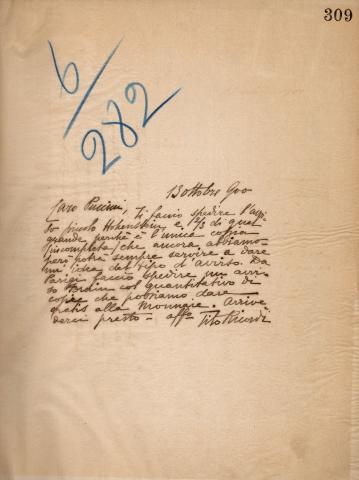 309
6/282
13 ottobre 900
Caro Puccini, Ti faccio spedire l'avvi-
so piccolo Hohenstein e 1 2/3 di quel
grande perchè è l'unica copia
incompleta che ancora abbiamo
però potrà sempre servire a dare
un' idea del tipo d'avviso. Da
Parigi faccio spedire un avvi-
so
col quantitativo di
copie che possiamo dare
gratis alla Monnaie. Arrive
derci presto - affo Tito Ricordi